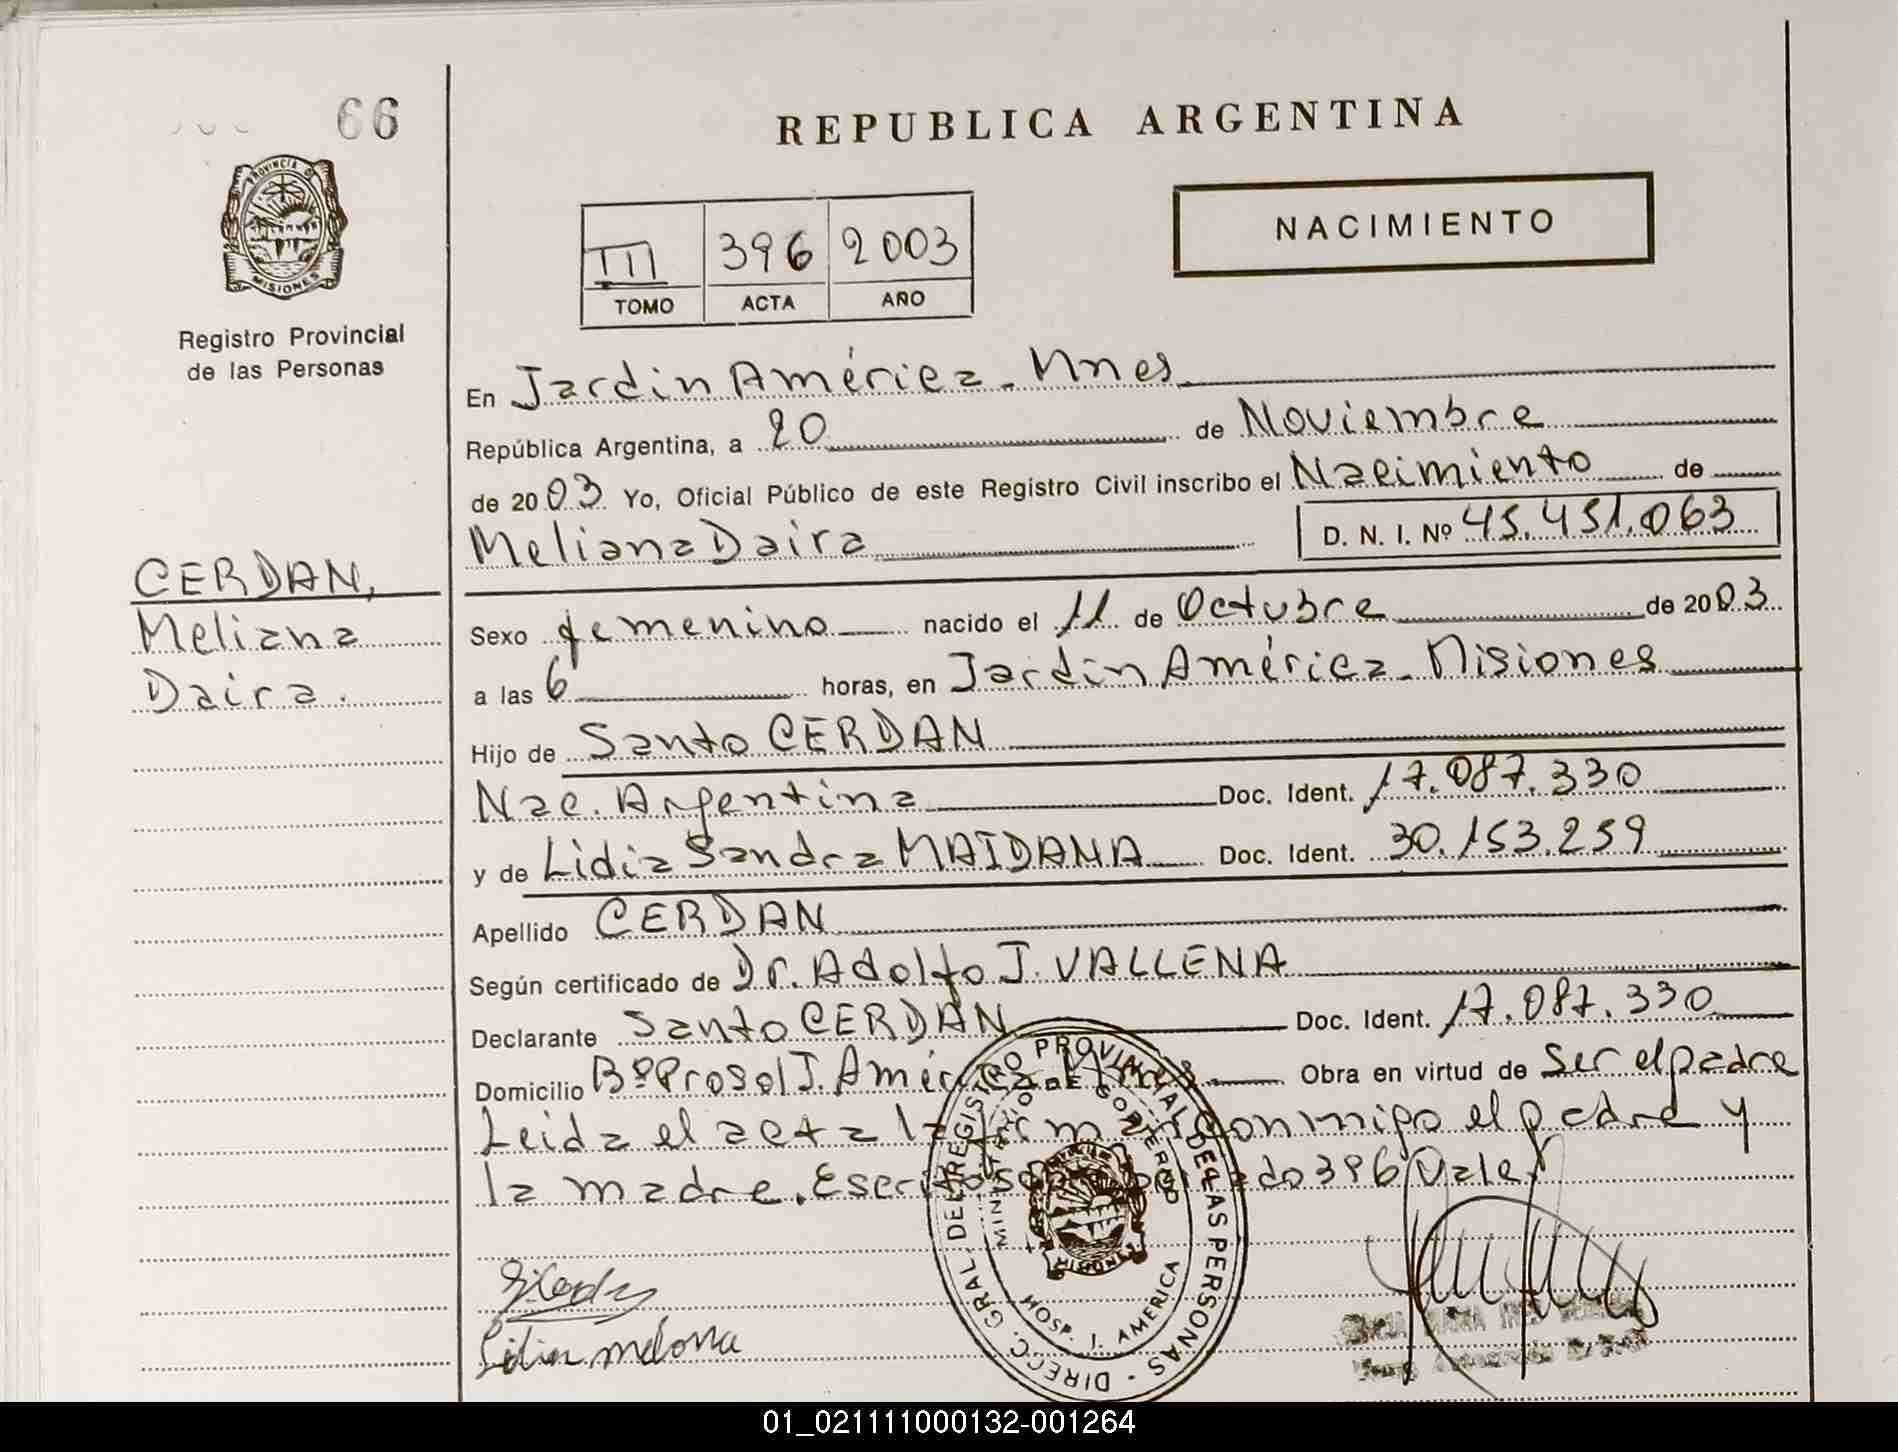 66
REPUBLICA ARGENTINA
PROVINCIA DE
MISIONES
NACIMIENTO
III 396 2003
TOMO ACTA AÑO
Registro Provincial
de las Personas
En Jardin América - Mnes
República Argentina, a 20 de Noviembre
de 2003 Yo, Oficial Público de este Registro Civil inscribo el Nacimiento de
Meliana Daira D. N. I. Nº 45.451.063
CERDAN,
Meliana
Daira.
Sexo femenino nacido el 11 de Octubre de 2003
a las 6 horas, en Jardin América - Misiones
Hijo de Santo CERDAN
Nac. Argentina Doc. Ident. 17.087.330
y de Lidia Sandra MAIDANA Doc. Ident. 30.153.259
Apellido CERDAN
Según certificado de Dr. Adolfo J. VALLENA
Declarante Santo CERDAN Doc. Ident. 17.087.330
Domicilio Bº Prosol J. América Mnes Obra en virtud de Ser el padre
Leida el acta la firman conmigo el padre y
la madre. Escrito sobre borrado 396 Vale
DIRECC. GRAL. DEL REGISTRO PROVINCIAL DE LAS PERSONAS
MINISTERIO DE GOBIERNO
HOSP. J. AMERICA
01_021111000132-001264